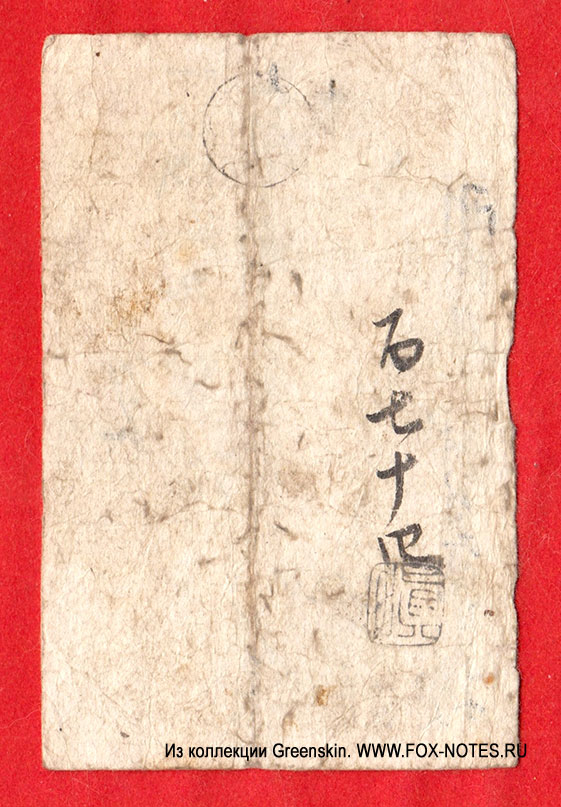 百七十四
Из коллекции Greenskin. WWW.FOX-NOTES.RU